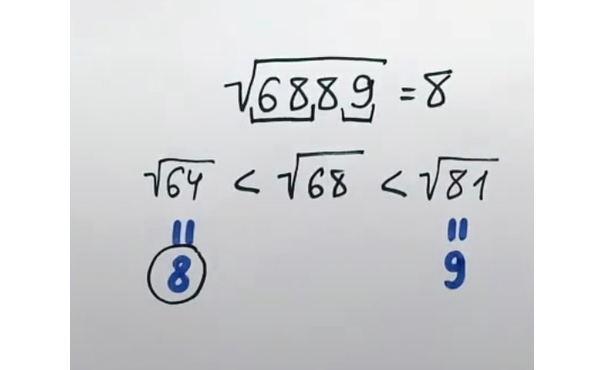 √6889 = 8
√64 < √68 < √81
= =
8 9